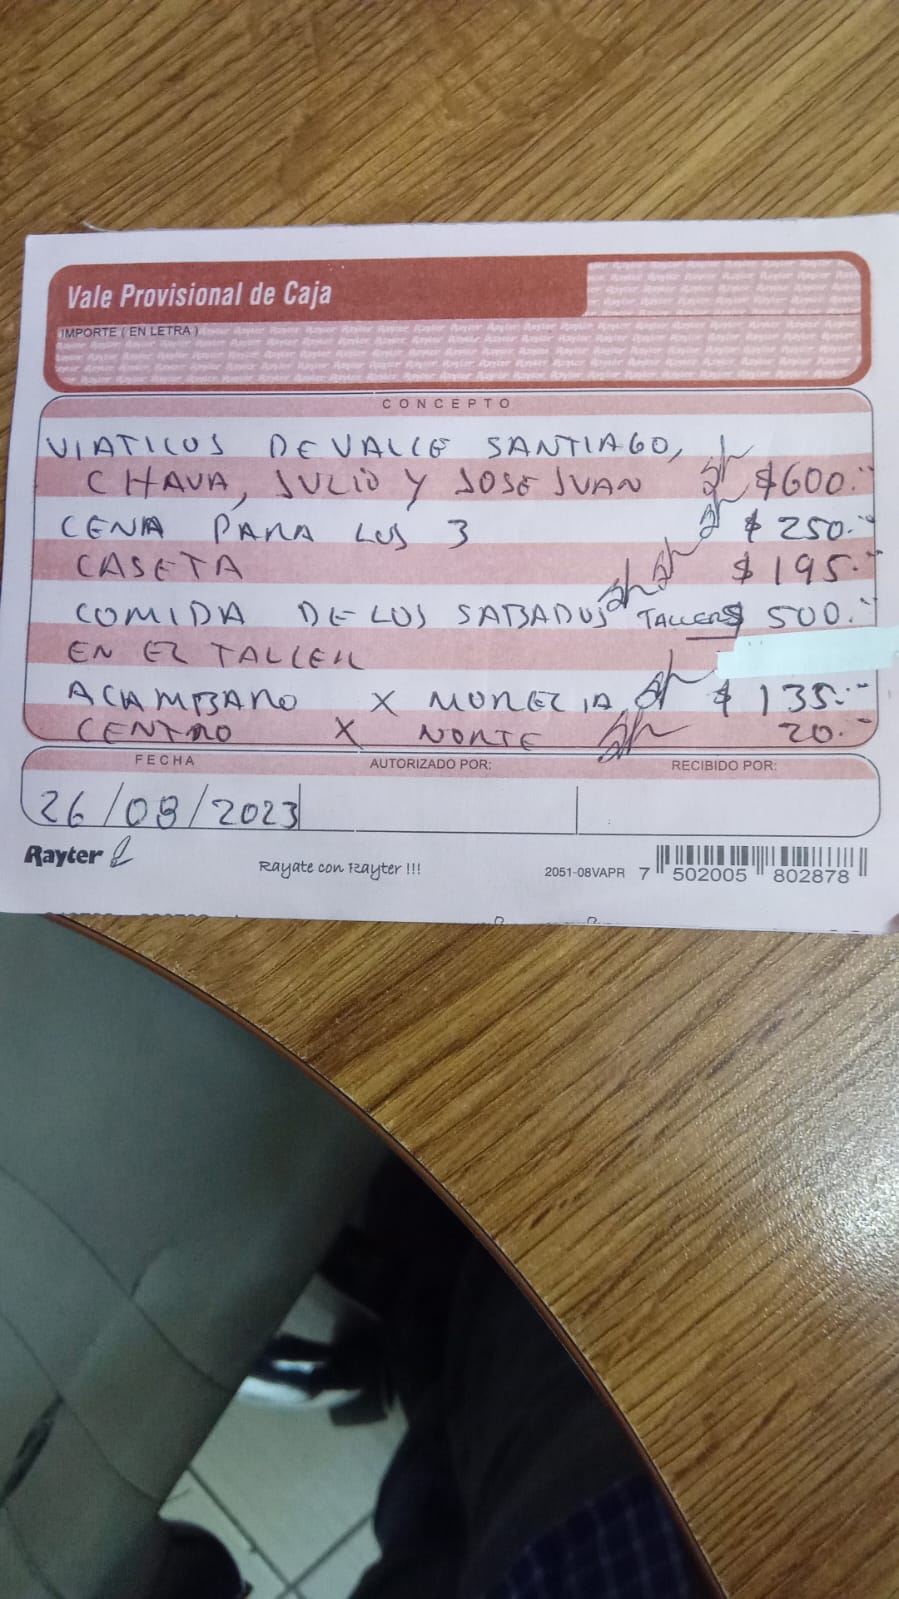 Vale Provisional de Caja
IMPORTE ( EN LETRA )
CONCEPTO
VIATICOS DE VALLE SANTIAGO,
CHAVA, JULIO Y JOSE JUAN $600.--
CENA PARA LOS 3 $ 250.--
CASETA $ 195.--
COMIDA DE LOS SABADOS TALLER $ 500.--
EN EL TALLER
ACAMBARO X MORELIA $ 135.--
CENTRO X NORTE 20.--
FECHA AUTORIZADO POR: RECIBIDO POR:
26/08/2023
Rayter Rayate con Rayter !!! 2051-08VAPR 7 502005 802878